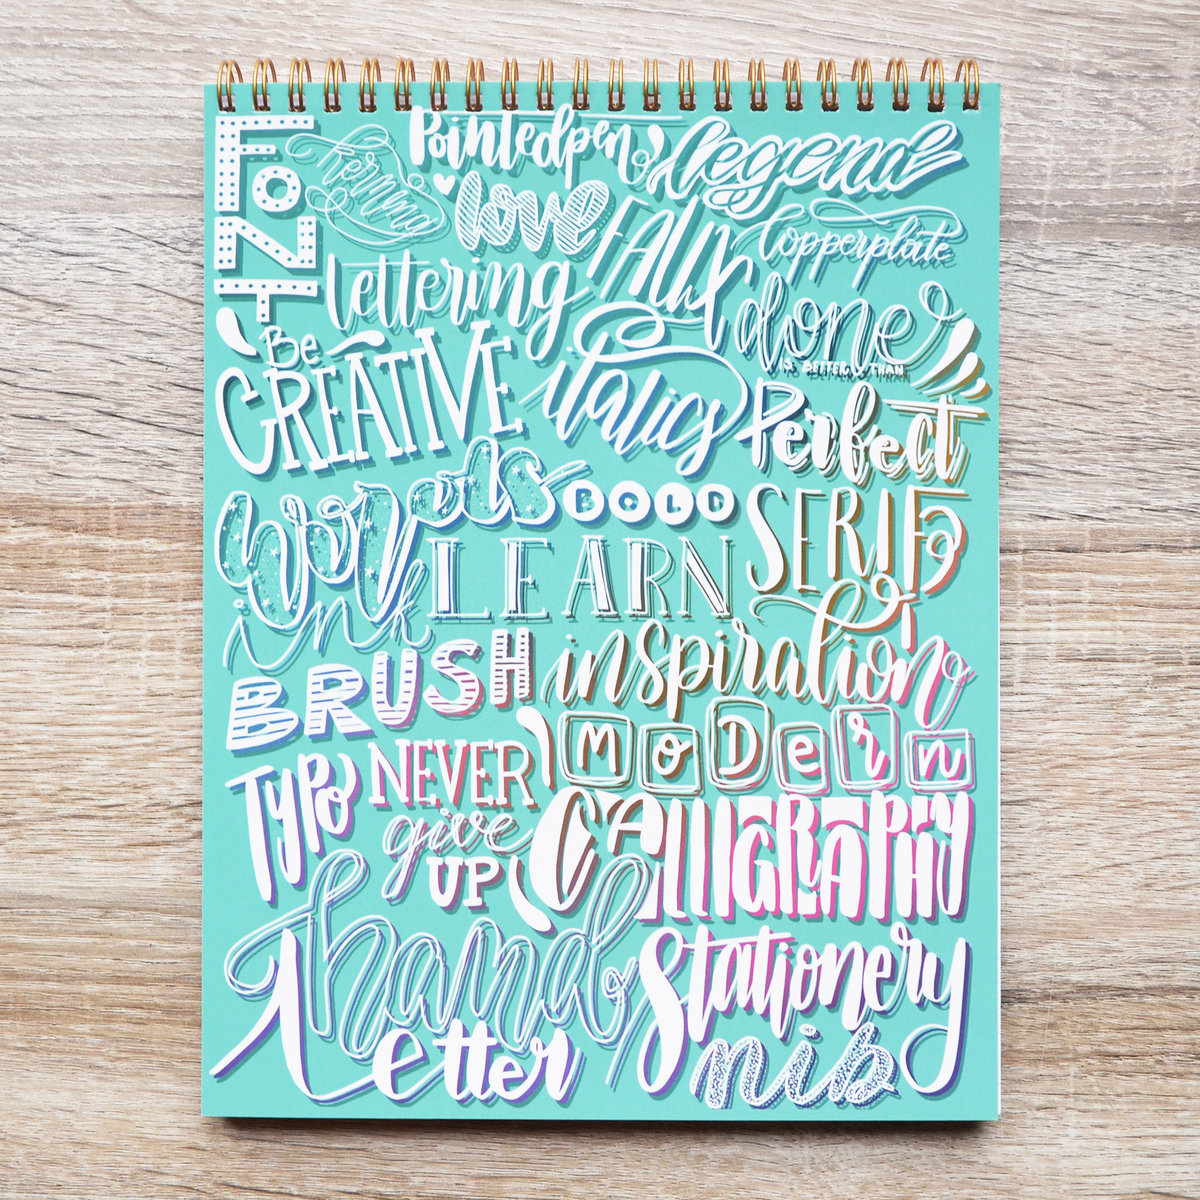 FONT
kerning
Pointedpen
legend
love
FAUX
Copperplate
lettering
done
IS BETTER THAN
Perfect
Be
CREATIVE
italics
words
BOLD
SERIF
ink
LEARN
BRUSH
inspiration
MODern
TYPO
NEVER
give
UP
CALLIGRAPHY
hand
Letter
Stationery
nib